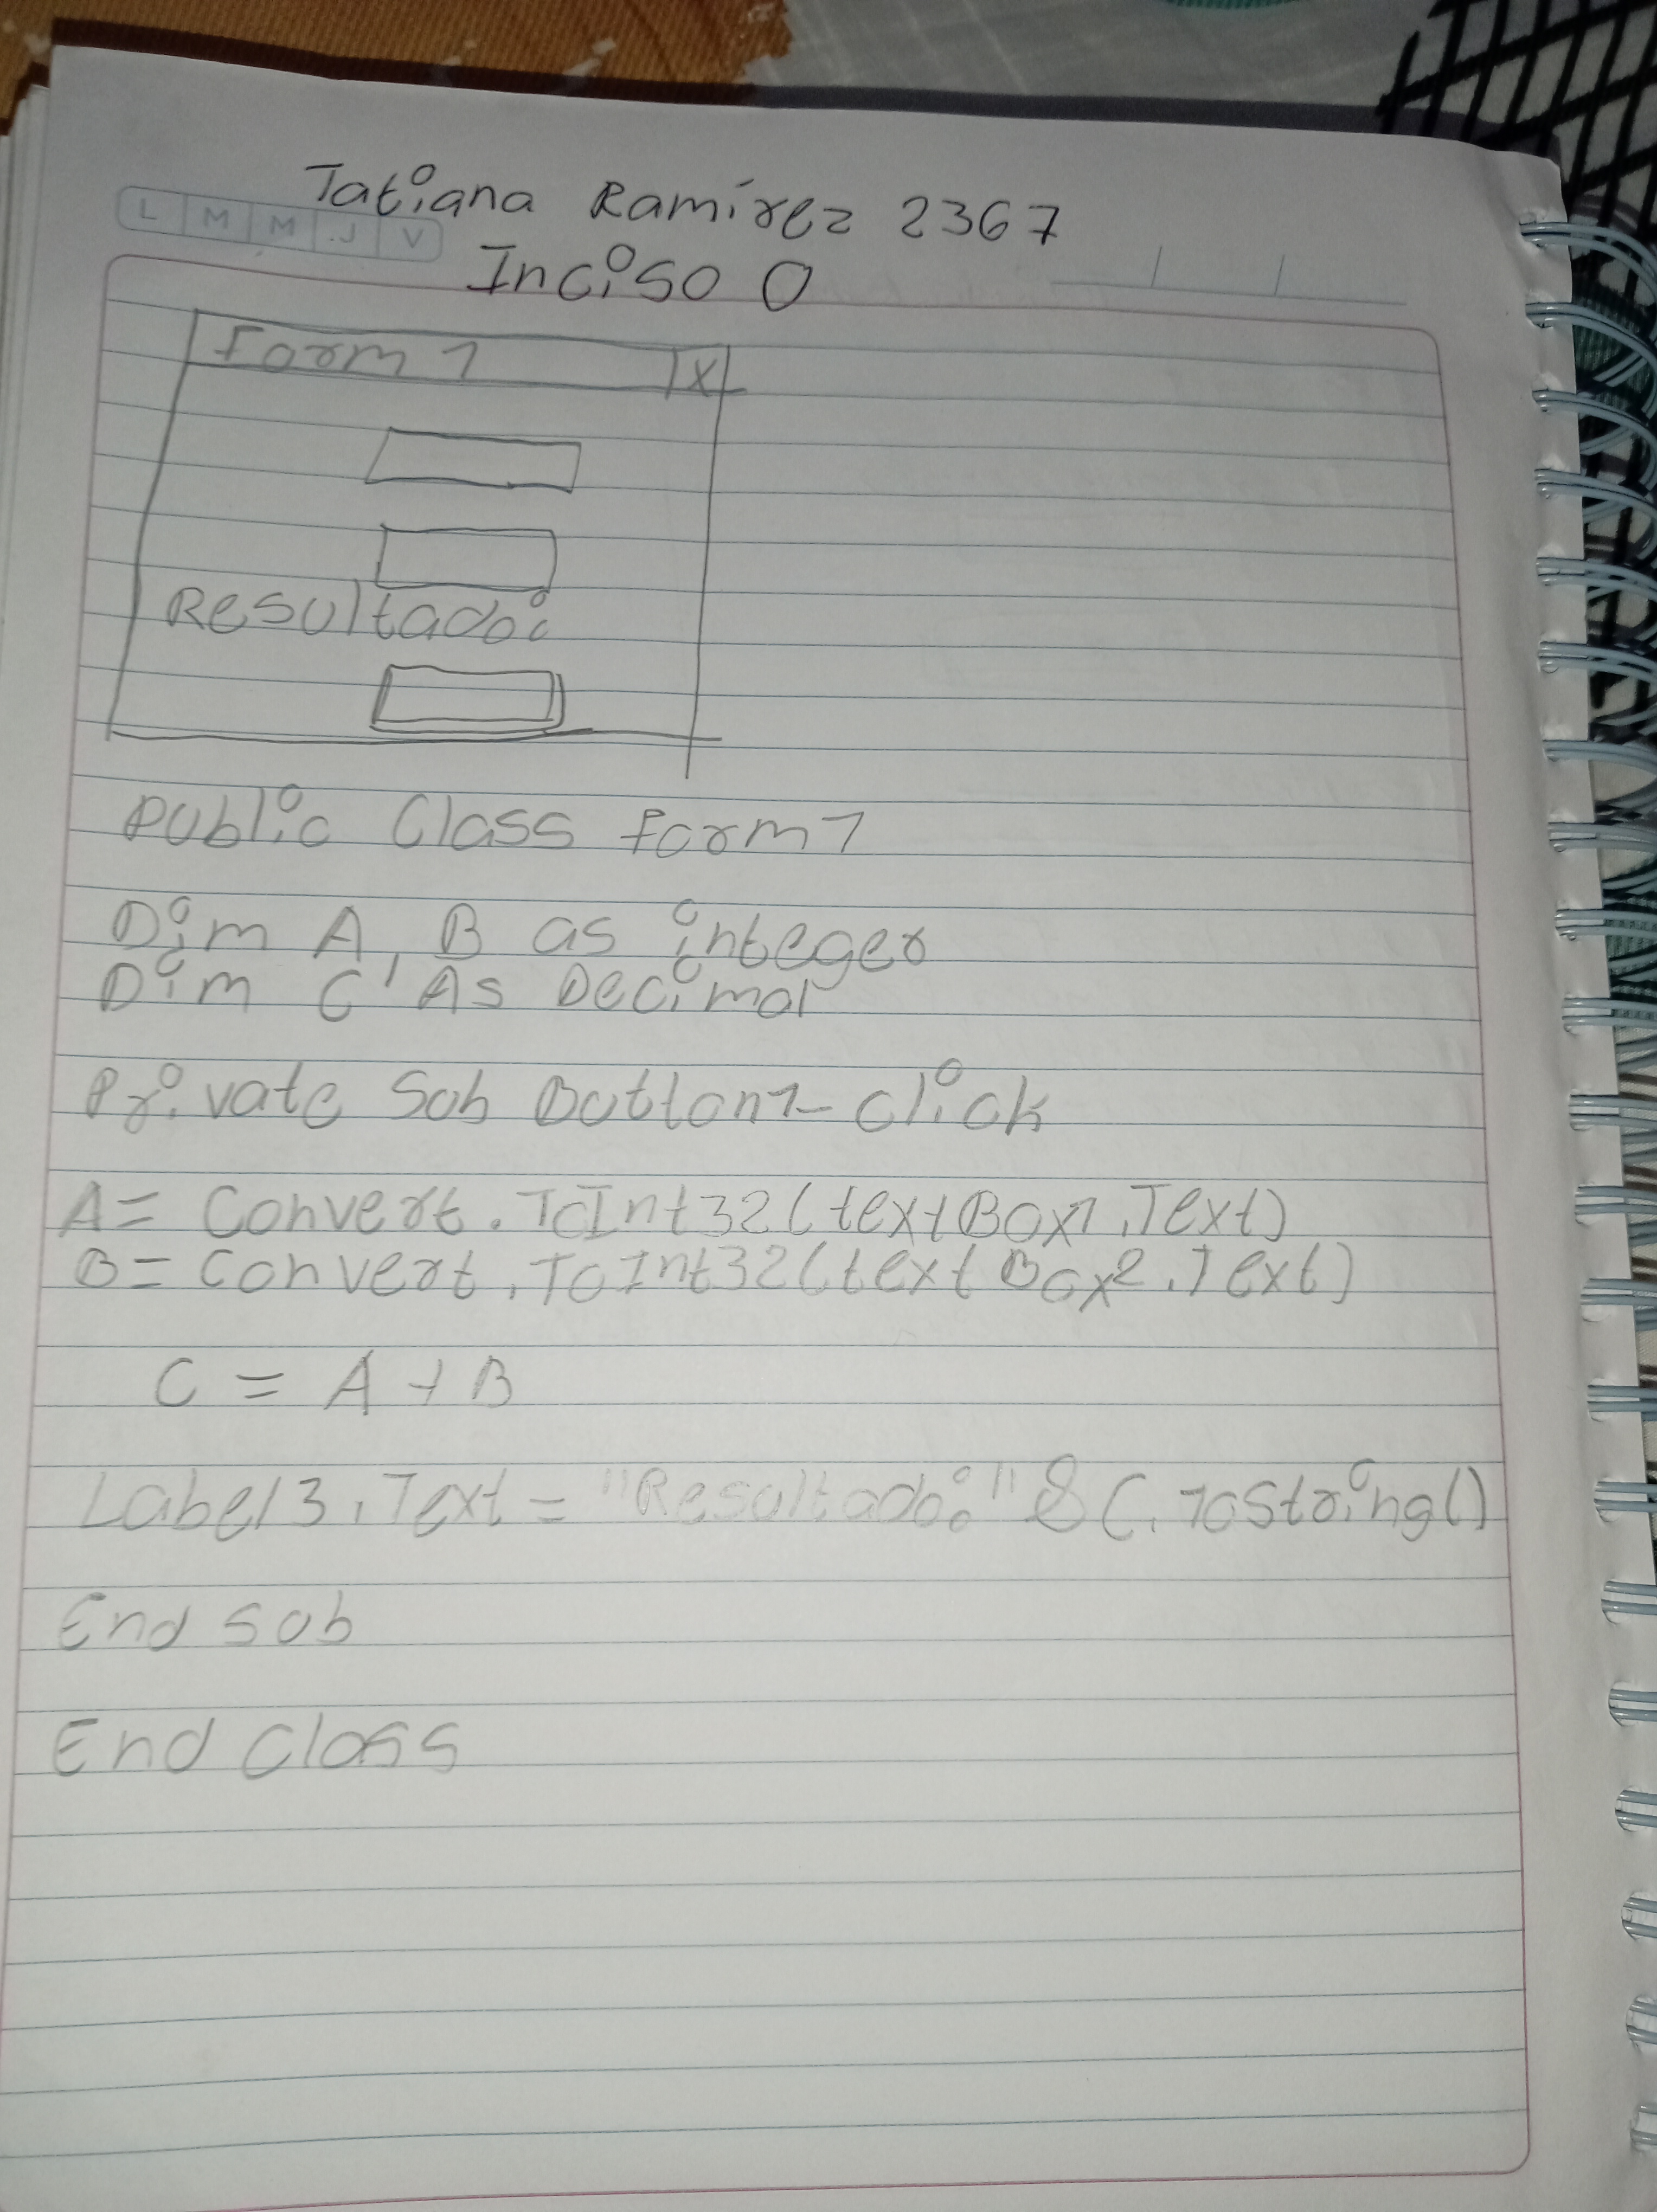 Tatiana Ramírez 2367
L M M J V
Inciso O
Form 1 X
Resultado:
Public Class form 1
Dim A, B as integer
Dim C As Decimal
Private Sub Button1_click
A= Convert.ToInt32(textBox1.Text)
B= Convert.ToInt32(textBox2.Text)
C = A + B
Label3.Text = "Resultado:" & C.ToString()
End sub
End class